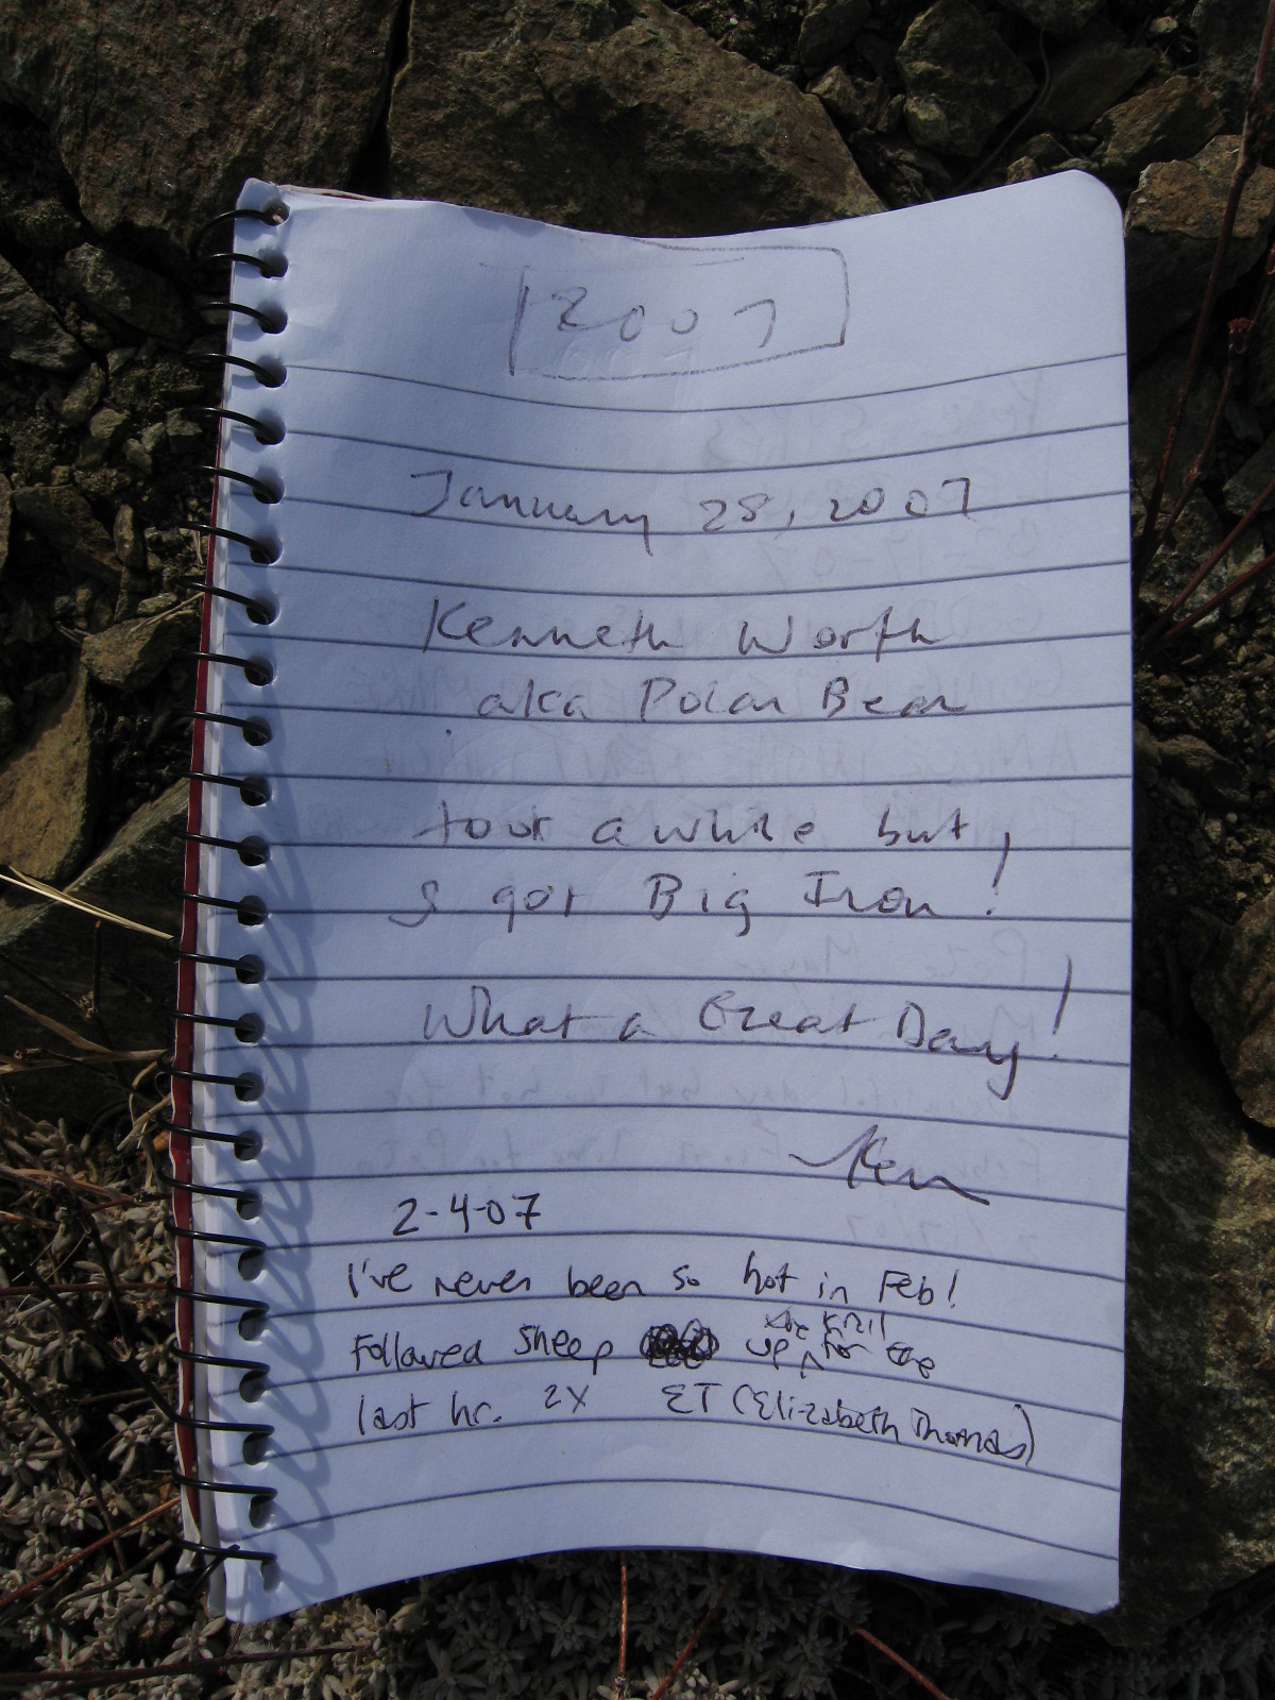 2007
January 28, 2007
Kenneth Worth
aka Polar Bear
took a while but
I got Big Iron!
What a Great Day!
Ken
2-4-07
I've never been so hot in Feb!
Followed sheep up the trail for the
last hr. 2X ET (Elizabeth Thomas)